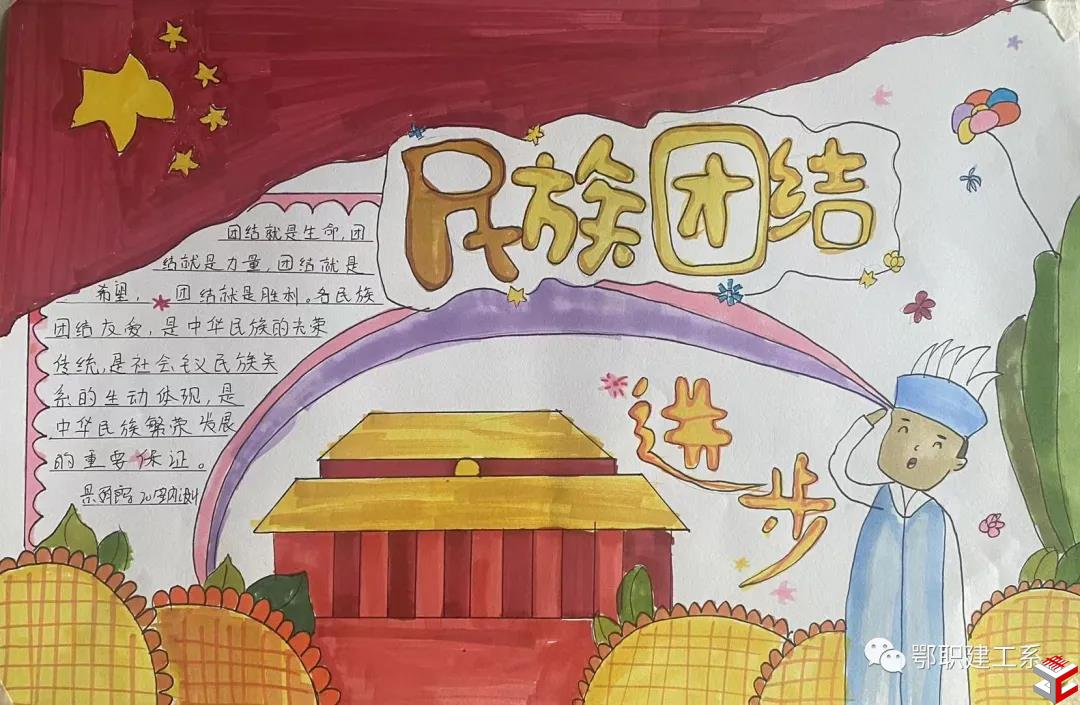 民族团结
进步
团结就是生命,团
结就是力量,团结就是
希望,团结就是胜利。各民族
团结友爱,是中华民族的光荣
传统,是社会主义民族关
系的生动体现,是
中华民族繁荣发展
的重要保证。
鄂职建工系